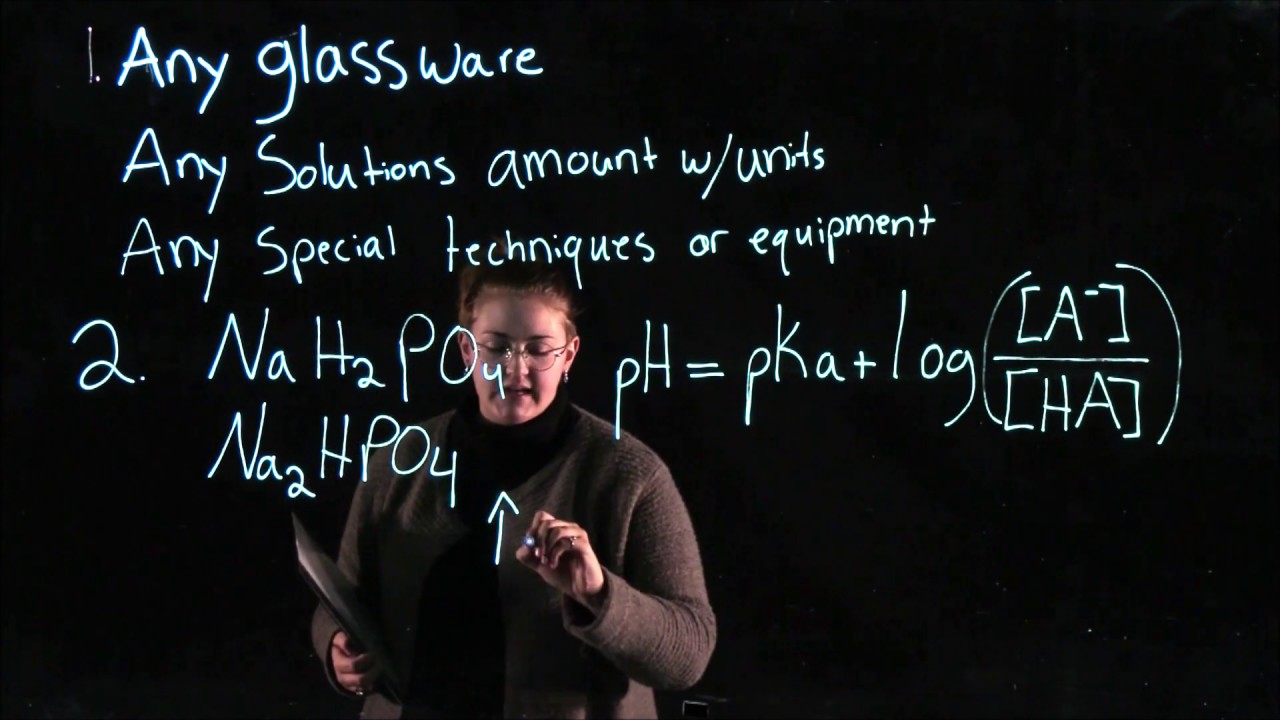 1. Any glassware
Any Solutions amount w/units
Any Special techniques or equipment
2. NaH₂PO₄ pH = pKa + log([A⁻]/[HA])
Na₂HPO₄ ↑